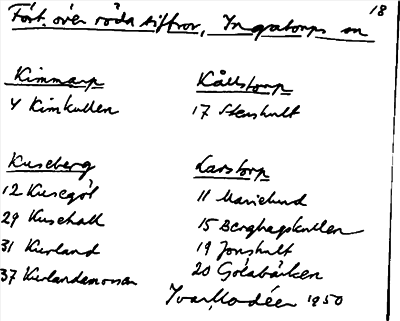 18
Fört. över röda siffror, Ingatorps sn
Kimmarp
4 Kimkullen
Kållstorp
17 Stenshult
Kuseberg
12 Kusegöl
29 Kusehall
31 Kurland
37 Kurlandsmossen
Larstorp
11 Marielund
15 Berghagskullen
19 Jonshult
20 Götabäcken
Ivar Modéer 1950